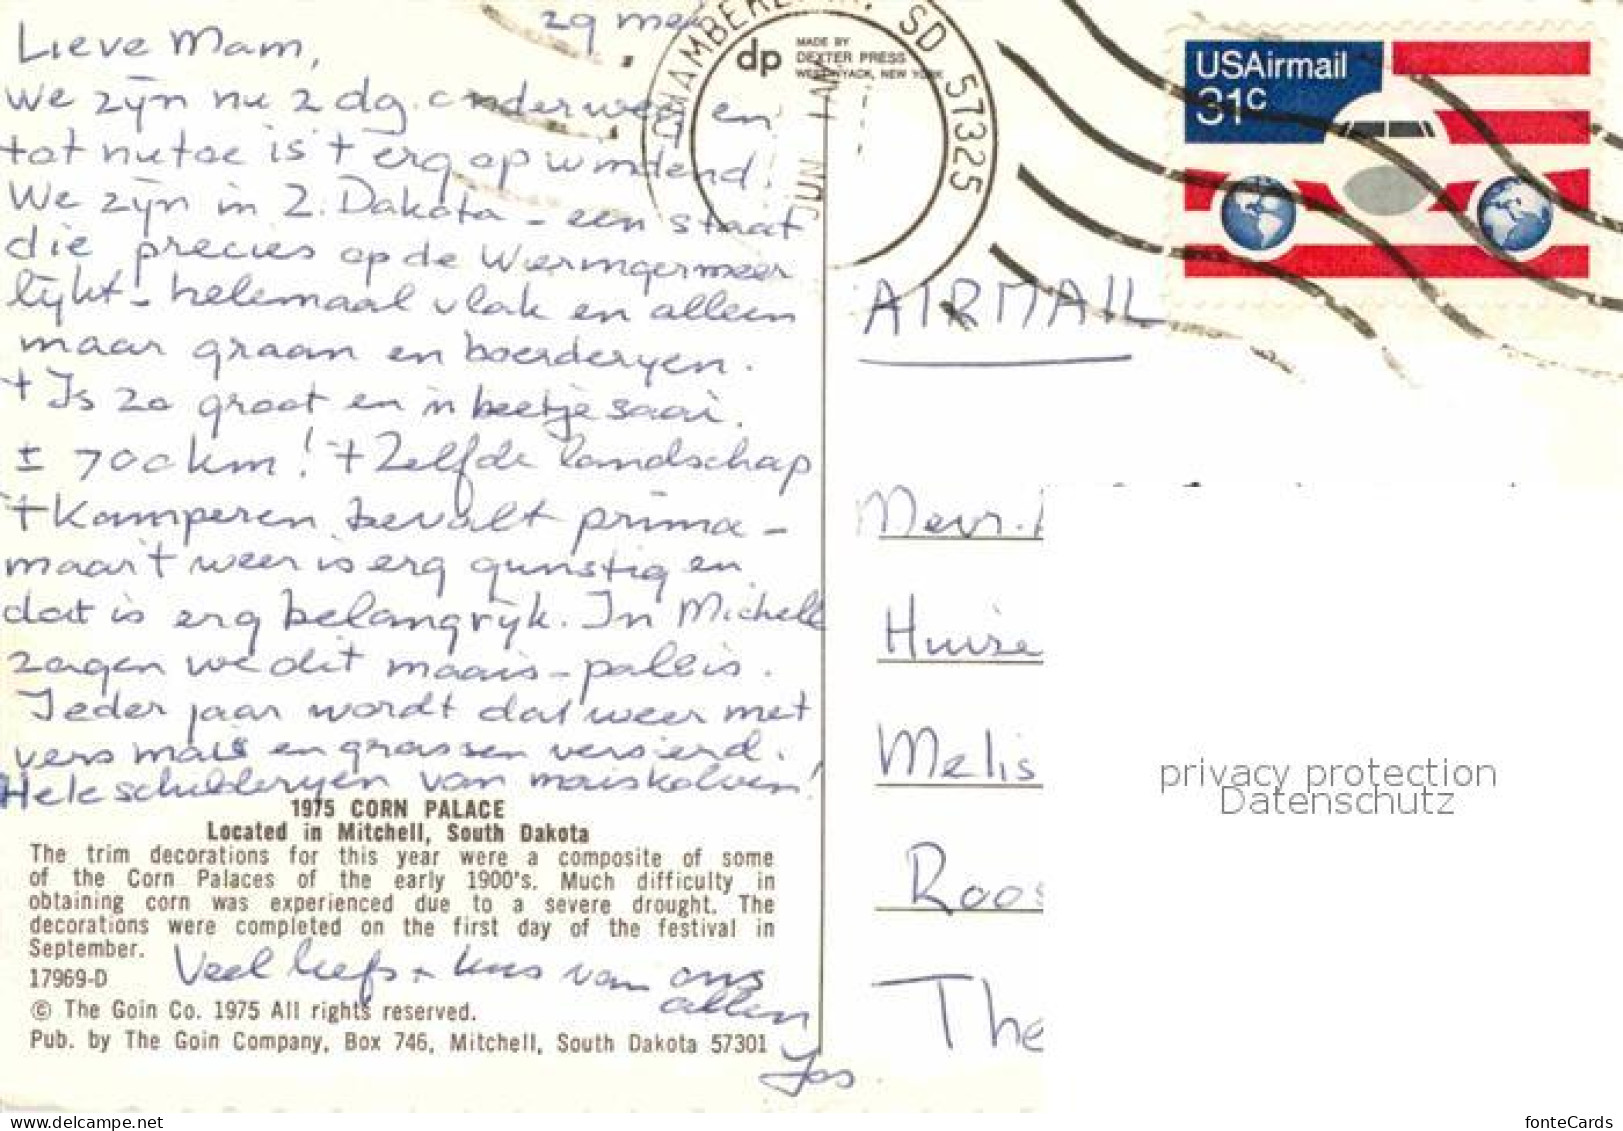 29 mei
Lieve Mam,
We zijn nu 2 dg. onderweg en
tot nu toe is 't erg opwindend.
We zijn in Z. Dakota - een staat
die precies op de Wieringermeer
lijkt - helemaal vlak en alleen
maar graan en boerderijen.
't Is zo groot en 'n beetje saai.
± 700 km! 't Zelfde landschap
't Kamperen bevalt prima -
maar 't weer is erg gunstig en
dat is erg belangrijk. In Michell
zagen we dit maais-paleis.
Ieder jaar wordt dat weer met
vers mais en grassen versierd.
Hele schilderijen van maiskolven!
1975 CORN PALACE
Located in Mitchell, South Dakota
The trim decorations for this year were a composite of some
of the Corn Palaces of the early 1900's. Much difficulty in
obtaining corn was experienced due to a severe drought. The
decorations were completed on the first day of the festival in
September.
17969-D
Veel liefs + kus van ons
allen
© The Goin Co. 1975 All rights reserved.
Pub. by The Goin Company, Box 746, Mitchell, South Dakota 57301
Jos
dp
MADE BY
DEXTER PRESS
WEST NYACK, NEW YORK
CHAMBERLAIN, SD 57325
JUN 1
USAirmail
31c
AIRMAIL
Mevr.
Huize
Melis
Roos
The
privacy protection
Datenschutz
fonteCards